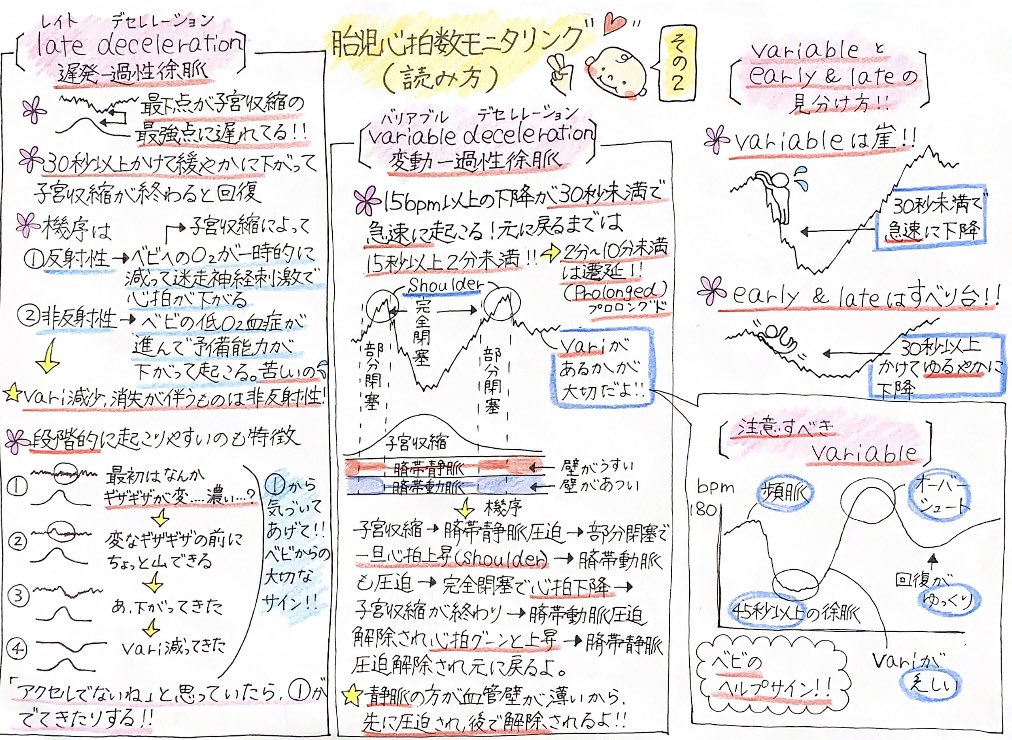 胎児心拍数モニタリング
(読み方)
その2
レイト デセレレーション
late deceleration
遅発一過性徐脈
最下点が子宮収縮の
最強点に遅れてる!!
30秒以上かけて緩やかに下がって
子宮収縮が終わると回復
機序は
子宮収縮によって
①反射性→ベビへのO₂が一時的に
減って迷走神経刺激で
心拍が下がる
②非反射性→ベビの低O₂血症が
進んで予備能力が
下がって起こる。苦しいの
☆Vari減少、消失が伴うものは非反射性!
段階的に起こりやすいのも特徴
① 最初はなんか
ギザギザが変....濃い…?
② 変なギザギザの前に
ちょっと山できる
③ あ、下がってきた
④ Vari減ってきた
①から
気づいて
あげて!!
ベビからの
大切な
サイン!!
「アクセルでないね」と思っていたら、①が
でてきたりする!!
バリアブル デセレレーション
variable deceleration
変動一過性徐脈
15bpm以上の下降が30秒未満で
急速に起こる!元に戻るまでは
15秒以上2分未満!!
2分~10分未満
は遷延!!
(Prolonged)
プロロングド
Shoulder
完全閉塞
部分閉塞
部分閉塞
Variが
あるかが
大切だよ!!
子宮収縮
臍帯静脈 ← 壁がうすい
臍帯動脈 ← 壁があつい
機序
子宮収縮→臍帯静脈圧迫→部分閉塞で
一旦心拍上昇(Shoulder)→臍帯動脈
も圧迫→完全閉塞で心拍下降→
子宮収縮が終わり→臍帯動脈圧迫
解除され心拍グーンと上昇→臍帯静脈
圧迫解除され元に戻るよ。
☆静脈の方が血管壁が薄いから、
先に圧迫され、後で解除されるよ!!
variableと
early & lateの
見分け方!!
variableは崖!!
30秒未満で
急速に下降
early & lateはすべり台!!
30秒以上
かけてゆるやかに
下降
注意すべき
variable
bpm
180
頻脈
オーバー
シュート
回復が
ゆっくり
45秒以上の徐脈
Variが
乏しい
ベビの
ヘルプサイン!!